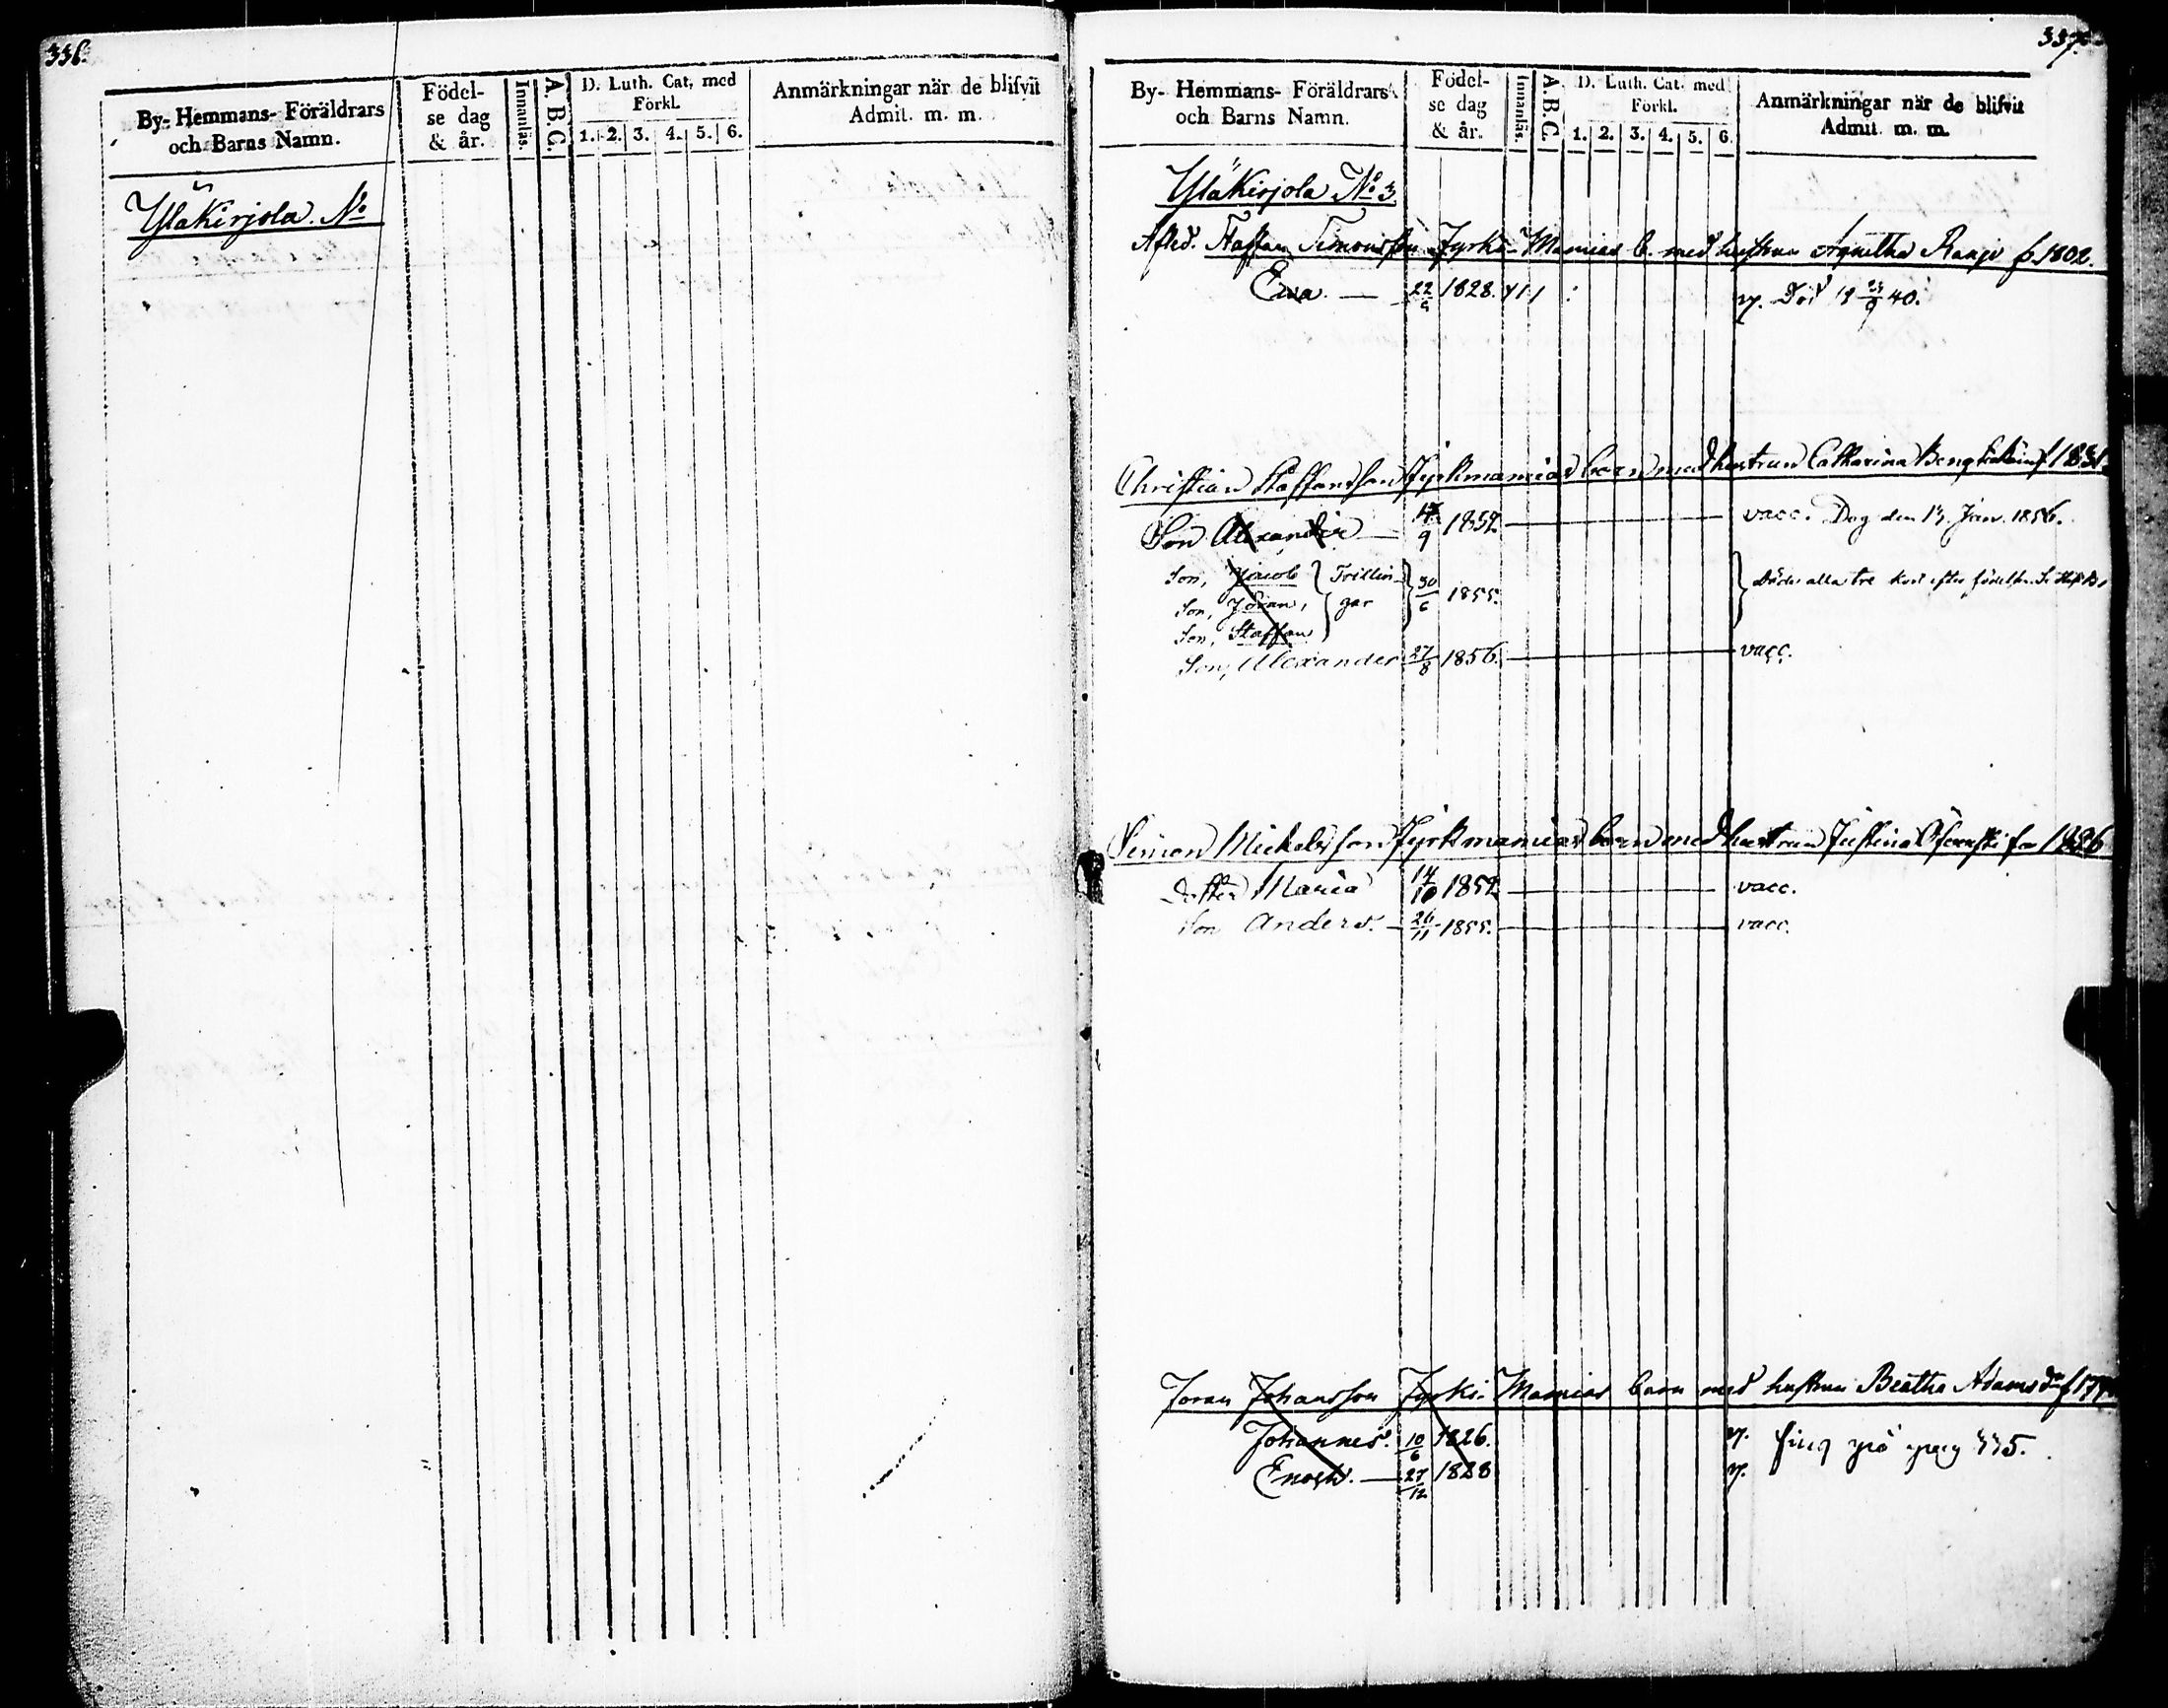 336.
By- Hemmans- Föräldrars och Barns Namn.
Födel-se dag & år.
Innanläs.
A. B. C.
D. Luth. Cat. med Förkl.
1. 2. 3. 4. 5. 6.
Anmärkningar när de blifvit Admit. m. m.
Yläkirjola. No
337.
By- Hemmans- Föräldrars och Barns Namn.
Födel-se dag & år.
Innanläs.
A. B. C.
D. Luth. Cat. med Förkl.
1. 2. 3. 4. 5. 6.
Anmärkningar när de blifvit Admit. m. m.
Yläkirjola No 3.
Afled. Staffan Simonsson Jyrki-Mamias b. med hustrun Agnetha Ranji f. 1802.
Ewa. — 22/9 1828. Död 40.
Christian Staffansson Jyrkimamias barn med hustrun Catharina f 1831.
Son Alexander — 9 1852 vacc. Dog den 13. Jan. 1856.
Son, Jacob } Trillin-gar } 30/6 1855. } Döde alla tre kort efter födelsen.
Son, Jöran,
Son, Staffan
Son, Alexander 27/8 1856. vacc.
Simon Mickelsson Jyrkimamias barn med hustrun Justina f. 1826
Dotter Maria 14/10 1852 vacc.
Son Anders. — 26/11 1855. vacc.
Joran Johansson Jyrki-Mamias barn med hustrun Beatha Adamsdr f 17
Johannes. 10/6 1826.
Enoch. — 27/12 1828